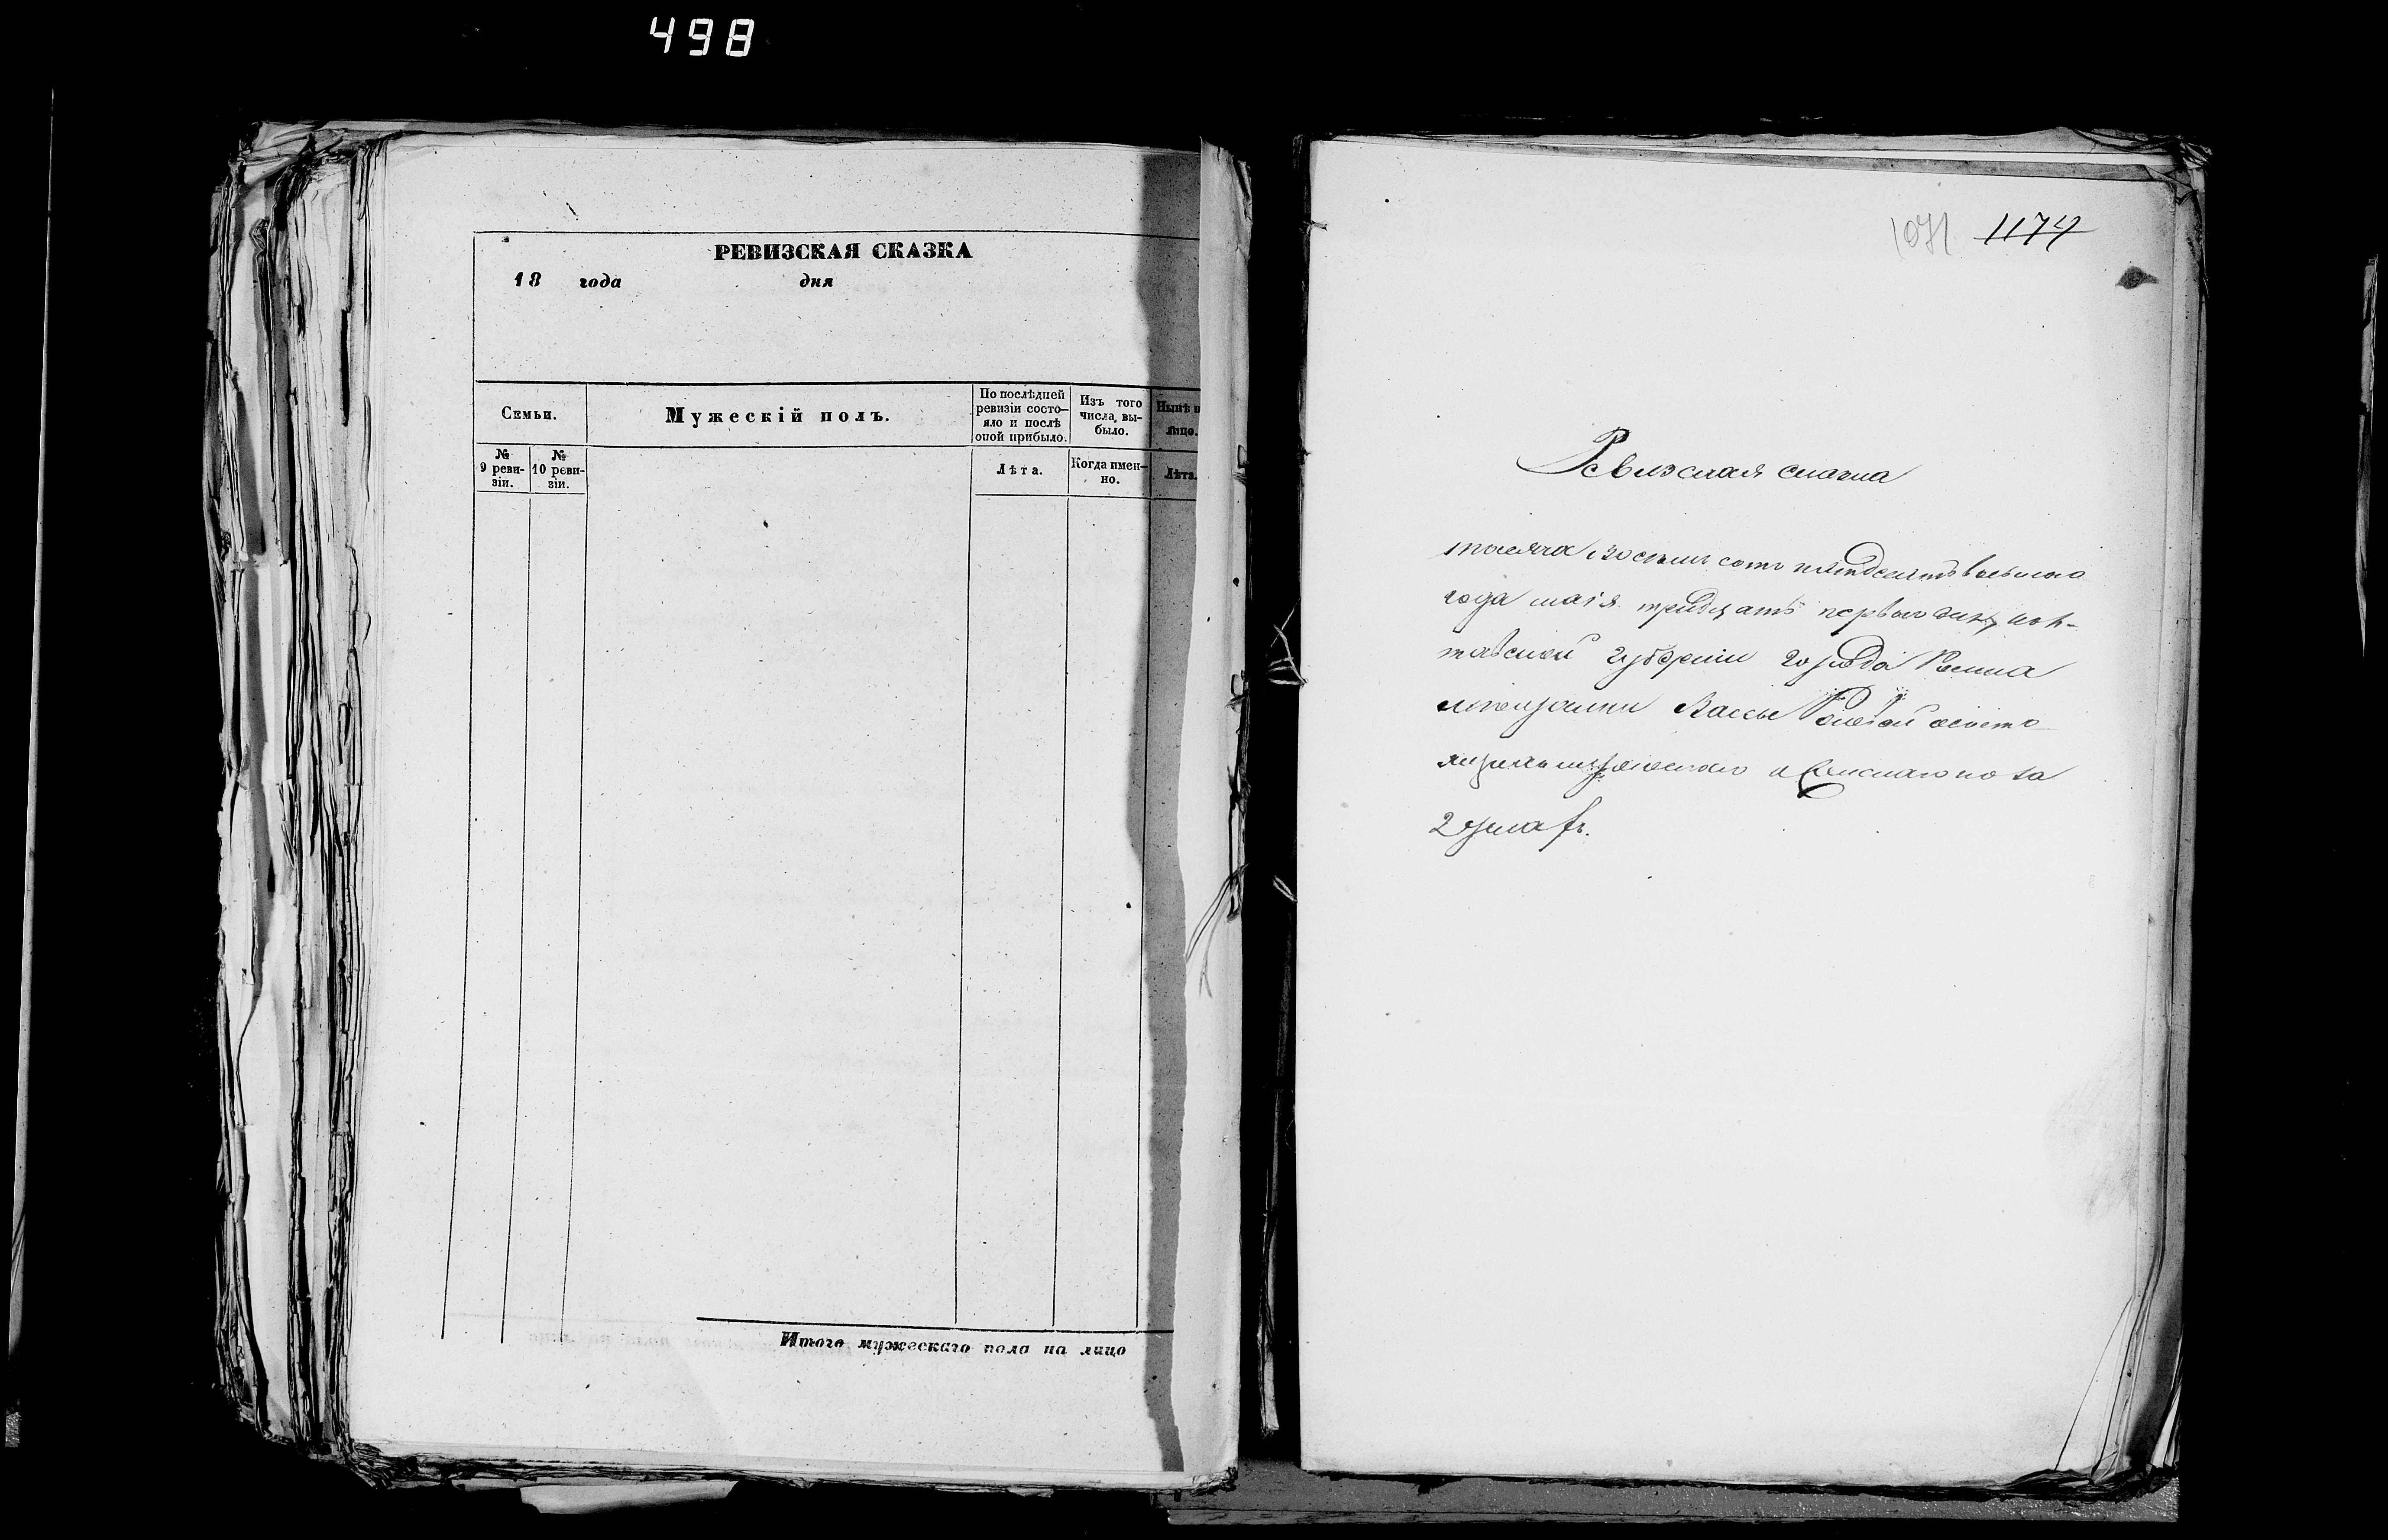 498
РЕВИЗСКАЯ СКАЗКА
18 года дня
Семьи.
Мужескій полъ.
По послѣдней ревизіи состо-
яло и послѣ
оной прибыло.
Изъ того
числа, вы-
было.
Нынѣ н
лицо.
№
9 реви-
зіи.
№
10 реви-
зіи.
Лѣта.
Когда имен-
но.
Лѣта.
Итого мужескаго пола на лицо
1071 1174
Ревизская сказка
тысяча восемь сотъ пятдесятъ восьмаго
года маія тридцатъ перваго дня, пол-
тавской губерніи города Ромна
мещанки Вассы
душахъ.